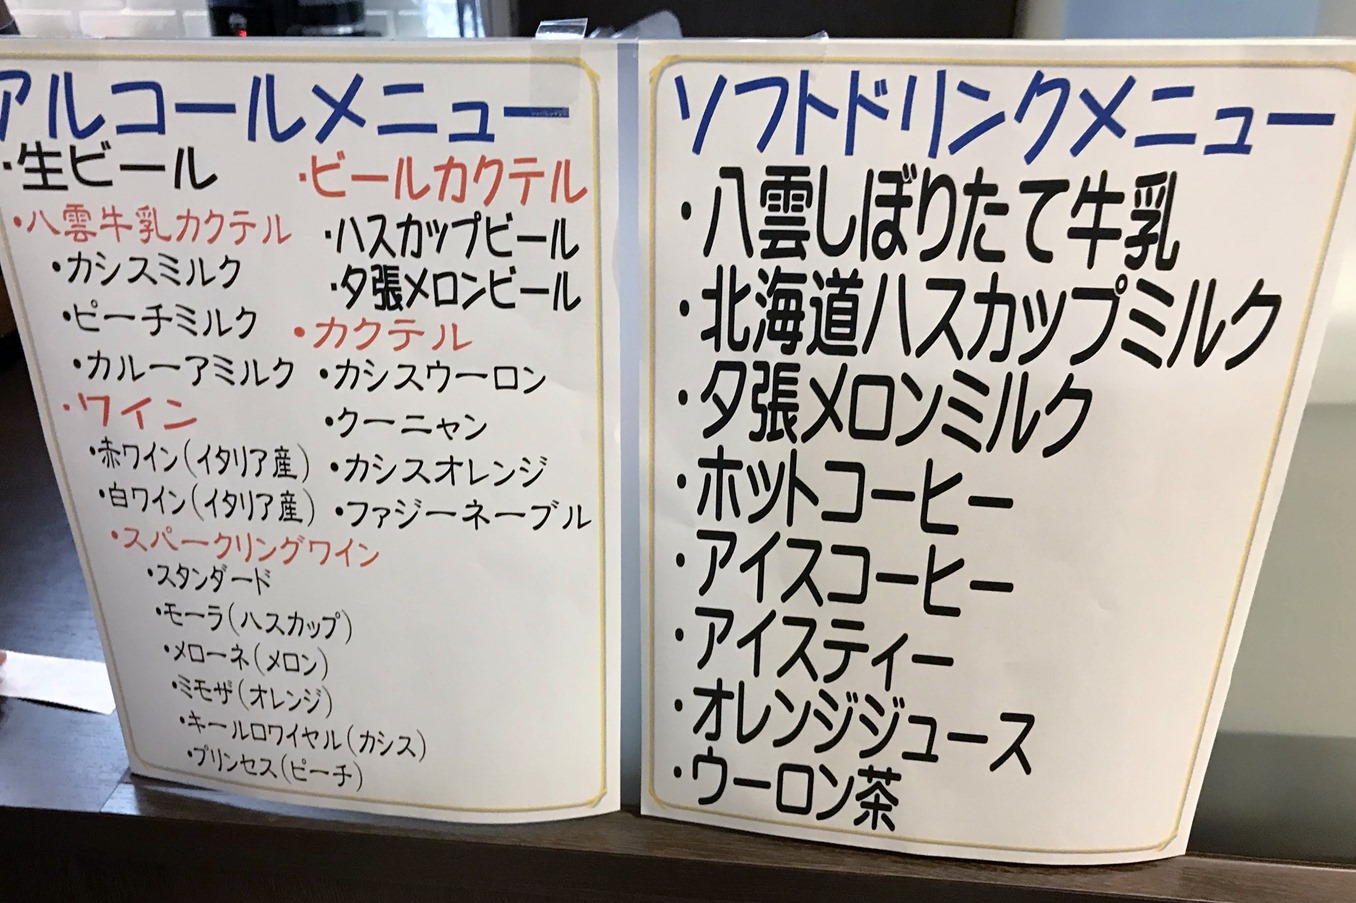 アルコールメニュー
・生ビール
・八雲牛乳カクテル
・カシスミルク
・ピーチミルク
・カルーアミルク
・ワイン
・赤ワイン(イタリア産)
・白ワイン(イタリア産)
・スパークリングワイン
・スタンダード
・モーラ(ハスカップ)
・メローネ(メロン)
・ミモザ(オレンジ)
・キールロワイヤル(カシス)
・プリンセス(ピーチ)
・ビールカクテル
・ハスカップビール
・夕張メロンビール
・カクテル
・カシスウーロン
・クーニャン
・カシスオレンジ
・ファジーネーブル
ソフトドリンクメニュー
・八雲しぼりたて牛乳
・北海道ハスカップミルク
・夕張メロンミルク
・ホットコーヒー
・アイスコーヒー
・アイスティー
・オレンジジュース
・ウーロン茶